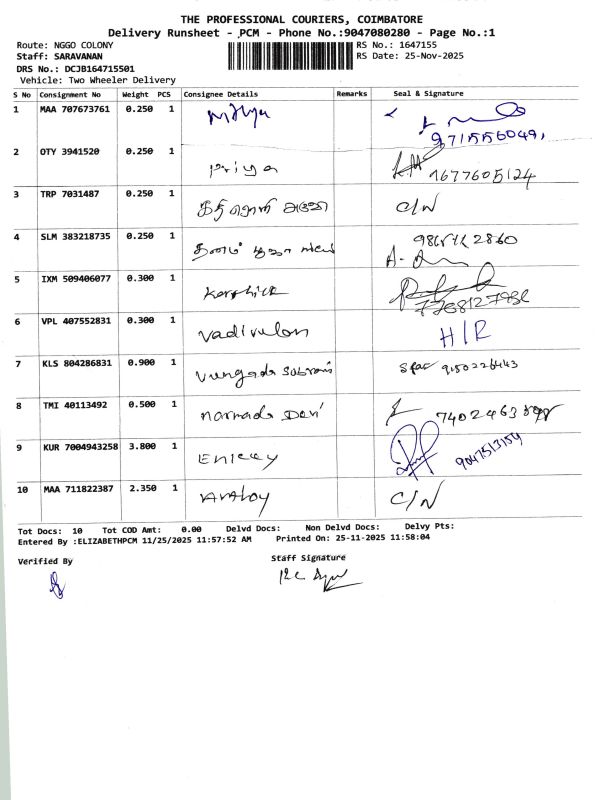 THE PROFESSIONAL COURIERS, COIMBATORE
Delivery Runsheet - PCM - Phone No.:9047080280 - Page No.:1
Route: NGGO COLONY RS No.: 1647155
Staff: SARAVANAN RS Date: 25-Nov-2025
DRS No.: DCJB164715501
Vehicle: Two Wheeler Delivery
S No Consignment No Weight PCS Consignee Details Remarks Seal & Signature
1 MAA 707673761 0.250 1
2 OTY 3941520 0.250 1 Priya 1677605124
3 TRP 7031487 0.250 1 C/N
4 SLM 383218735 0.250 1
5 IXM 509406077 0.300 1 Karthick
6 VPL 407552831 0.300 1 Vadivulan H/R
7 KLS 804286831 0.900 1 9150226443
8 TMI 40113492 0.500 1 Narmada Devi
9 KUR 7004943258 3.800 1 9047513154
10 MAA 711822387 2.350 1 C/N
Tot Docs: 10 Tot COD Amt: 0.00 Delvd Docs: Non Delvd Docs: Delvy Pts:
Entered By :ELIZABETHPCM 11/25/2025 11:57:52 AM Printed On: 25-11-2025 11:58:04
Verified By Staff Signature